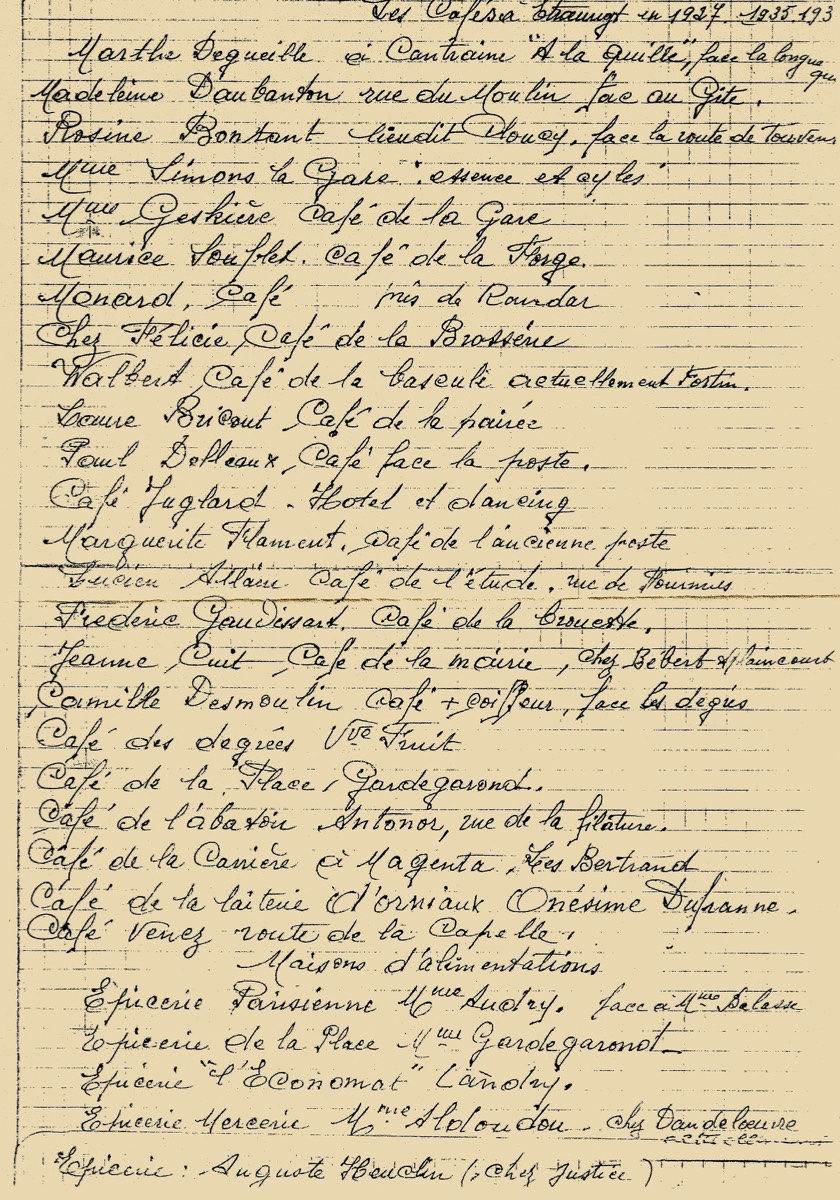 Les Cafés à Etrœungt en 1927. 1935. 193
Marthe Dequeille à Contraine "A la quille", face la longue
Madeleine Daubanton rue du Moulin fac au Gite.
Rosine Bontant lieudit face la route de
Mme Simons la Gare : essence et cycles
Mme Geskière Café de la Gare
Maurice Souflet. Café de la Forge.
Monard, Café près de Roundar
Chez Félicie Café de la Brossérie
Walbert Café de la bascule actuellement Fortin.
Laure Bricout Café de la pairée
Paul Delleaux, Café face la poste.
Café Juglard - Hotel et dancing
Marguerite Flament. Café de l'ancienne poste
Lucien Allain Café de l'étude. rue de Fourmies
Frederic Gaudissart. Café de la brouette.
Jeanne Cuit Café de la mairie, chez Bébert
Camille Desmoulin Café + coiffeur, face les degrés
Café des degrées Vve Fruit
Café de la Place, Gardegarond.
Café de l'abatoir Antonor, rue de la filature.
Café de la Carrière à Magenta, Les Bertrand
Café de la laiterie d'orniaux Onésime Dufranne.
Café Venez route de la Capelle.
Maisons d'alimentations
Epicerie Parisienne Mme Audry. face à Mme Delasse
Epicerie de la Place Mme Gardegarond
Epicerie "l'Economat" Landry.
Epicerie Mercerie Mme Aldoudou - chez Dandelœuvre
Epicerie : Auguste Heuclin (: chez Justice )